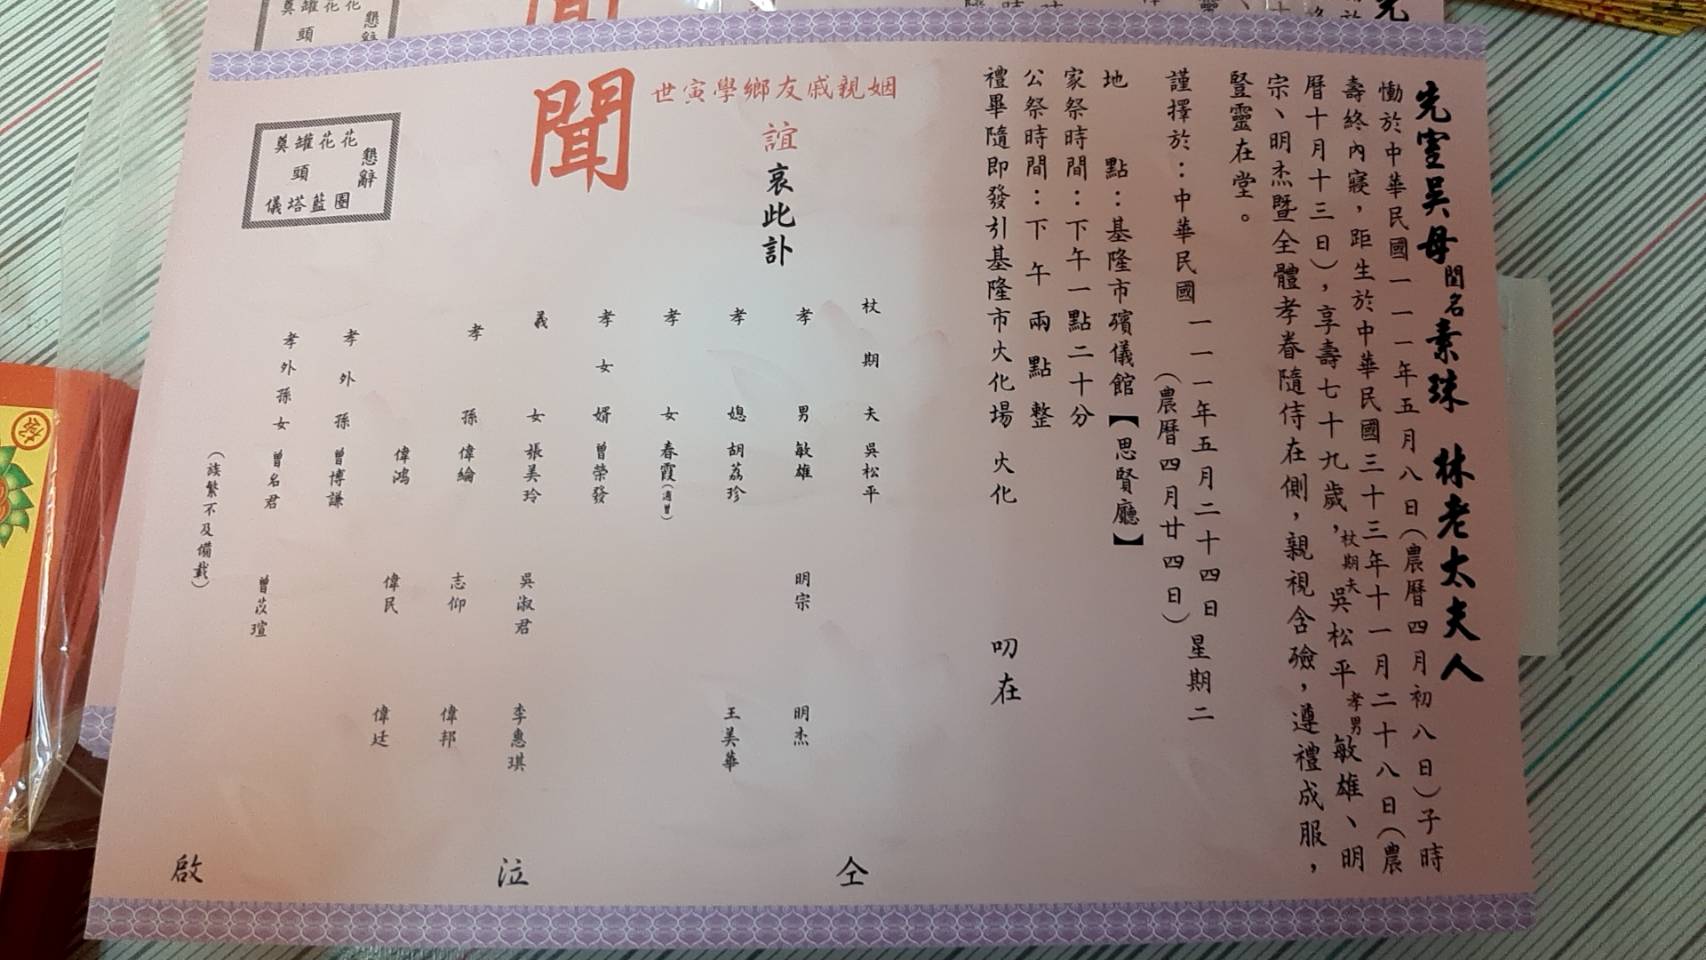 先室吳母閨名素珠 林老太夫人
慟於中華民國一一一年五月八日(農曆四月初八日)子時
壽終內寢，距生於中華民國三十三年十一月二十八日(農
曆十月十三日)，享壽七十九歲，杖期夫吳松平孝男敏雄、明
宗、明杰暨全體孝眷隨侍在側，親視含殮，遵禮成服，
豎靈在堂。
謹擇於：中華民國一一一年五月二十四日星期二
(農曆四月廿四日)
地 點：基隆市殯儀館【思賢廳】
家祭時間：下午一點二十分
公祭時間：下午兩點整
禮畢隨即發引基隆市火化場 火化 叨在
姻親戚友鄉學寅世
誼 哀此訃
聞
懇辭
花花罐奠
頭
圈藍塔儀
杖期夫 吳松平
孝男 敏雄 明宗 明杰
孝媳 胡荔珍 王美華
孝女 春霞(適曾)
孝女婿 曾榮發
義女 張美玲 吳淑君 李惠琪
孝孫 偉綸 志仰 偉邦
偉鴻 偉民 偉廷
孝外孫 曾博謙
孝外孫女 曾名君 曾苡瑄
(族繁不及備載)
仝 泣 啟